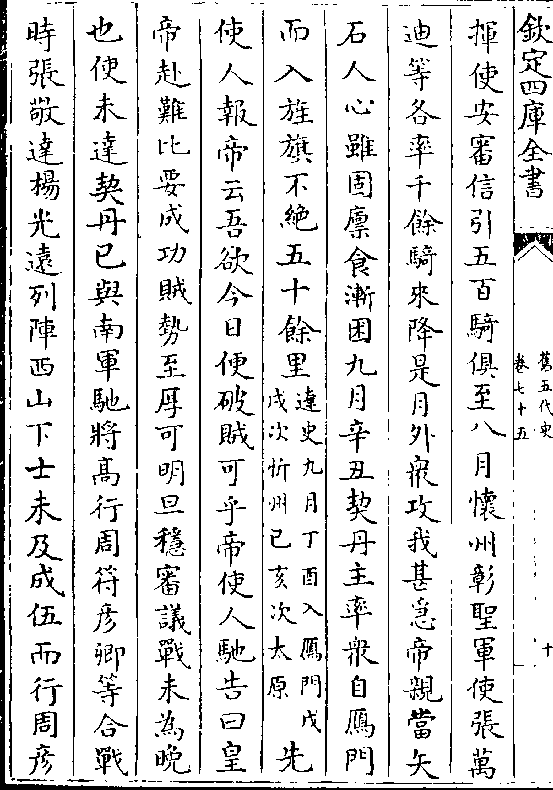 欽定四庫全書
舊五代史
卷七十五
十
揮使安審信引五百騎俱至八月懷州彰聖軍使張萬
迪等各率千餘騎來降是月外衆攻我甚急帝親當矢
石人心雖固廪食漸困九月辛丑契丹主率衆自鴈門
而入旌旗不絶五十餘里
達史九月丁酉入鴈門戊
戌次忻州己亥次太原
先
使人報帝云吾欲今日便破賊可乎帝使人馳告曰皇
帝赴難比要成功賊勢至厚可明旦穩審議戰未為晩
也使未達契丹已與南軍馳將髙行周符彦卿等合戰
時張敬達楊光遠列陣西山下士未及成伍而行周彦